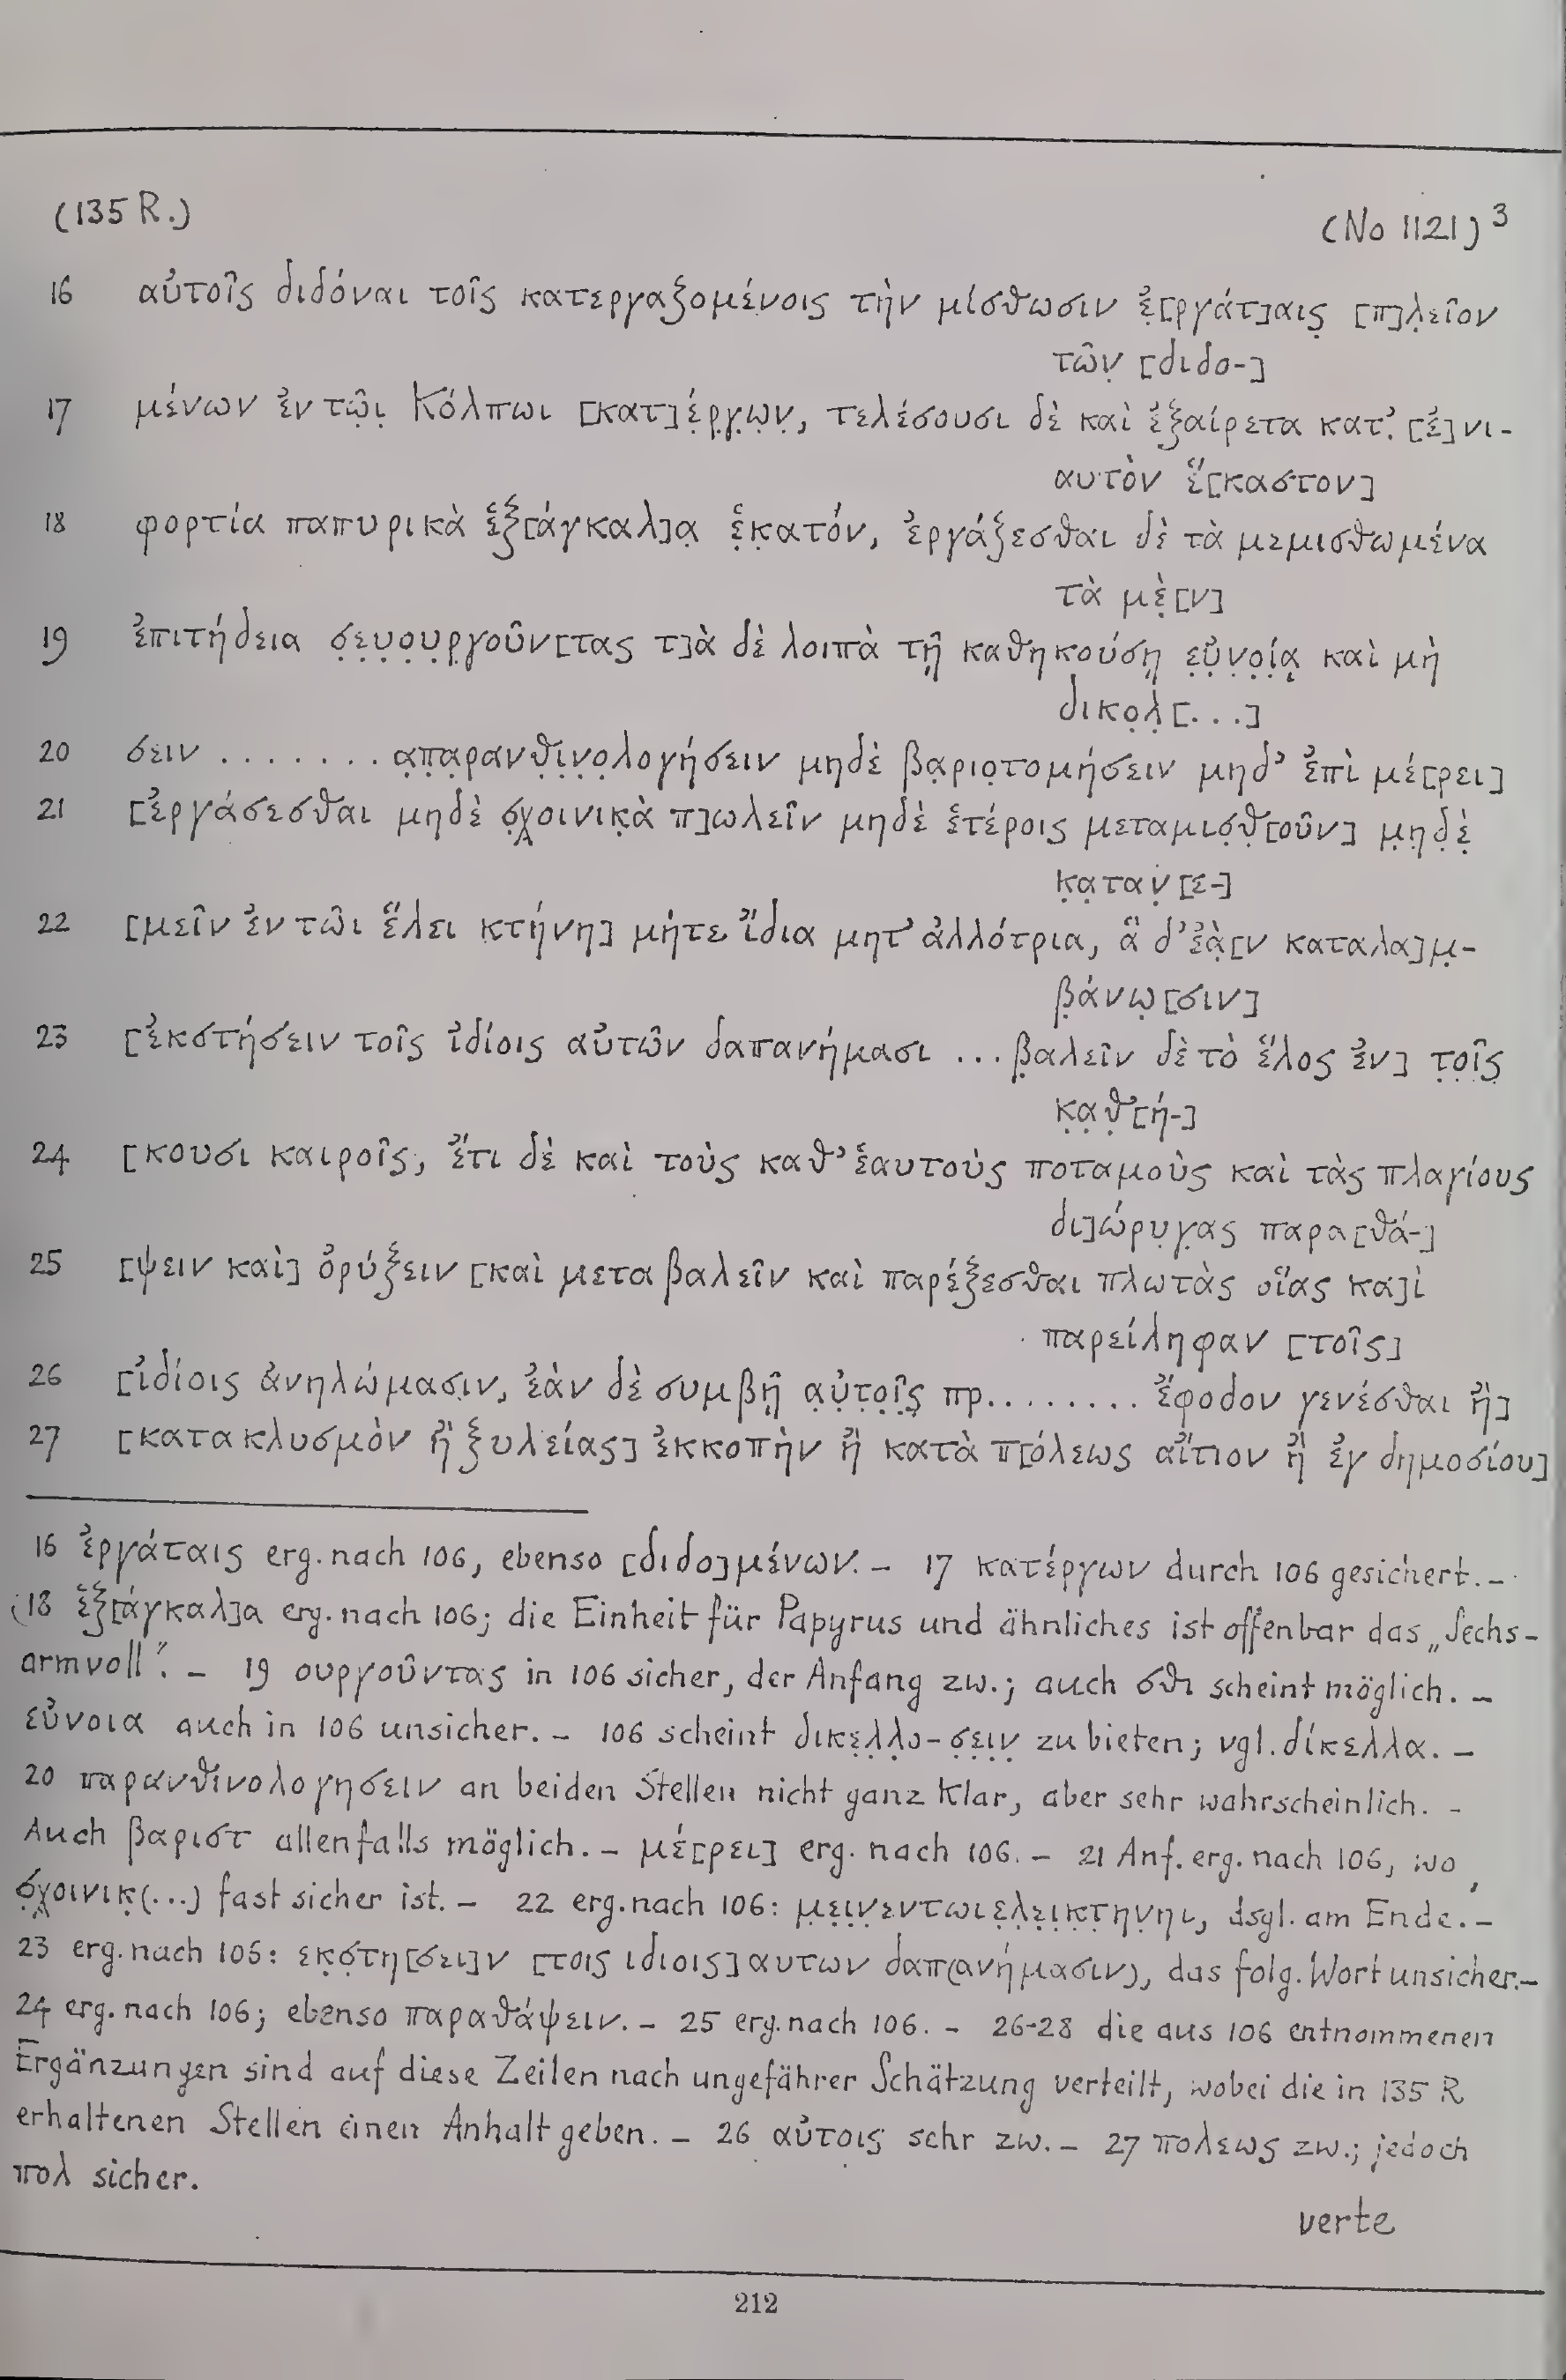 (135 R.) (No 1121) 3
16 αὐτοῖς διδόναι τοῖς κατεργαζομένοις τὴν μίσθωσιν ἐ̣[ργάτ]αις̣ [π]λ̣εῖον
τῶν̣ [διδο-]
17 μένων ἐν τῶ̣ι̣ Κόλπωι [κατ]έ̣ρ̣γ̣ω̣ν̣, τελέσουσι δὲ καὶ ἐξαίρετα κατ’̣ [ἐ]νι-
αυτὸν ἕ[καστον]
18 φορτία παπυρικὰ ἑξ[άγκαλ]α̣ ἑ̣κ̣ατόν, ἐργάζεσθαι δὲ τὰ μεμισθωμένα
τὰ μὲ̣[ν]
19 ἐπιτήδεια σ̣ε̣υ̣ο̣υ̣ρ̣γοῦν[τας τ]ὰ δὲ λοιπὰ τῇ καθηκούσῃ ε̣ὐ̣ν̣ο̣ί̣ᾳ καὶ μὴ
δικο̣λ̣[...]
20 σειν ....... α̣π̣α̣ρανθ̣ι̣ν̣ο̣λογήσειν μηδὲ βα̣ριο̣τομήσειν μηδ’ ἐπὶ μέ[ρει]
21 [ἐργάσεσθαι μηδὲ σ̣χ̣οινικ̣ὰ π]ωλεῖν μηδὲ ἑτέροις μεταμισ̣θ̣[οῦν] μ̣η̣δ̣ὲ̣
κ̣α̣ταν̣[ε-]
22 [μεῖν ἐν τῶι ἕλει κτήνη] μήτε ἴδια μητ’ ἀλλότρια, ἃ δ’ ἐὰ̣[ν καταλα]μ̣-
β̣άνω̣[σιν]
23 [ἐκστήσειν τοῖς ἰδίοις αὐτῶν δαπανήμασι ... β̣αλεῖν δὲ τὸ ἕλος ἐν] τ̣ο̣ῖ̣ς̣
κ̣α̣θ̣[ή-]
24 [κουσι καιροῖς, ἔτι δὲ καὶ τοὺς καθ’ ἑαυτοὺς ποταμοὺς καὶ τὰς πλαγίους
δι]ώρυ̣γ̣ας παρα[θά-]
25 [ψειν καὶ] ὀρύξειν [καὶ μεταβαλεῖν καὶ παρέξεσθαι πλωτὰς οἵας κα]ὶ
παρείληφαν [τοῖς]
26 [ἰδίοις ἀνηλώμασιν, ἐὰν δὲ συμβῇ α̣ὐ̣τ̣ο̣ῖ̣ς̣ πρ........ ἔφοδον γενέσθαι ἢ]
27 [κατακλυσμὸν ἢ ξυλείας] ἐκκοπὴν ἢ κατὰ π[όλεως αἴτιον ἢ ἐγ δημοσίου]
16 ἐργάταις erg. nach 106, ebenso [διδο]μένων. – 17 κατέργων durch 106 gesichert. –
18 ἑξ[άγκαλ]α erg. nach 106; die Einheit für Papyrus und ähnliches ist offenbar das „Sechs-
armvoll“. – 19 ουργοῦντας in 106 sicher, der Anfang zw.; auch σθι scheint möglich. –
εὔνοια auch in 106 unsicher. – 106 scheint δικε̣λ̣λ̣υ-σ̣ε̣ι̣ν̣ zu bieten; vgl. δίκελλα. –
20 παρανθινολογησειν an beiden Stellen nicht ganz klar, aber sehr wahrscheinlich. –
Auch βαριστ allenfalls möglich. – μέ[ρει] erg. nach 106. – 21 Anf. erg. nach 106, wo
σ̣χ̣οινικ̣(...) fast sicher ist. – 22 erg. nach 106: μ̣ε̣ι̣ν̣εντωιε̣λ̣ε̣ι̣κ̣τ̣η̣ν̣η̣ι, dsgl. am Ende. –
23 erg. nach 106: εκ̣σ̣τη[σει]ν [τοις ιδιοις] αυτων δαπ(ανήμασιν), das folg. Wort unsicher. –
24 erg. nach 106; ebenso παραθάψειν. – 25 erg. nach 106. – 26-28 die aus 106 entnommenen
Ergänzungen sind auf diese Zeilen nach ungefährer Schätzung verteilt, wobei die in 135 R
erhaltenen Stellen einen Anhalt geben. – 26 αὐτοις sehr zw. – 27 πολεως zw.; jedoch
πολ sicher.
verte
212